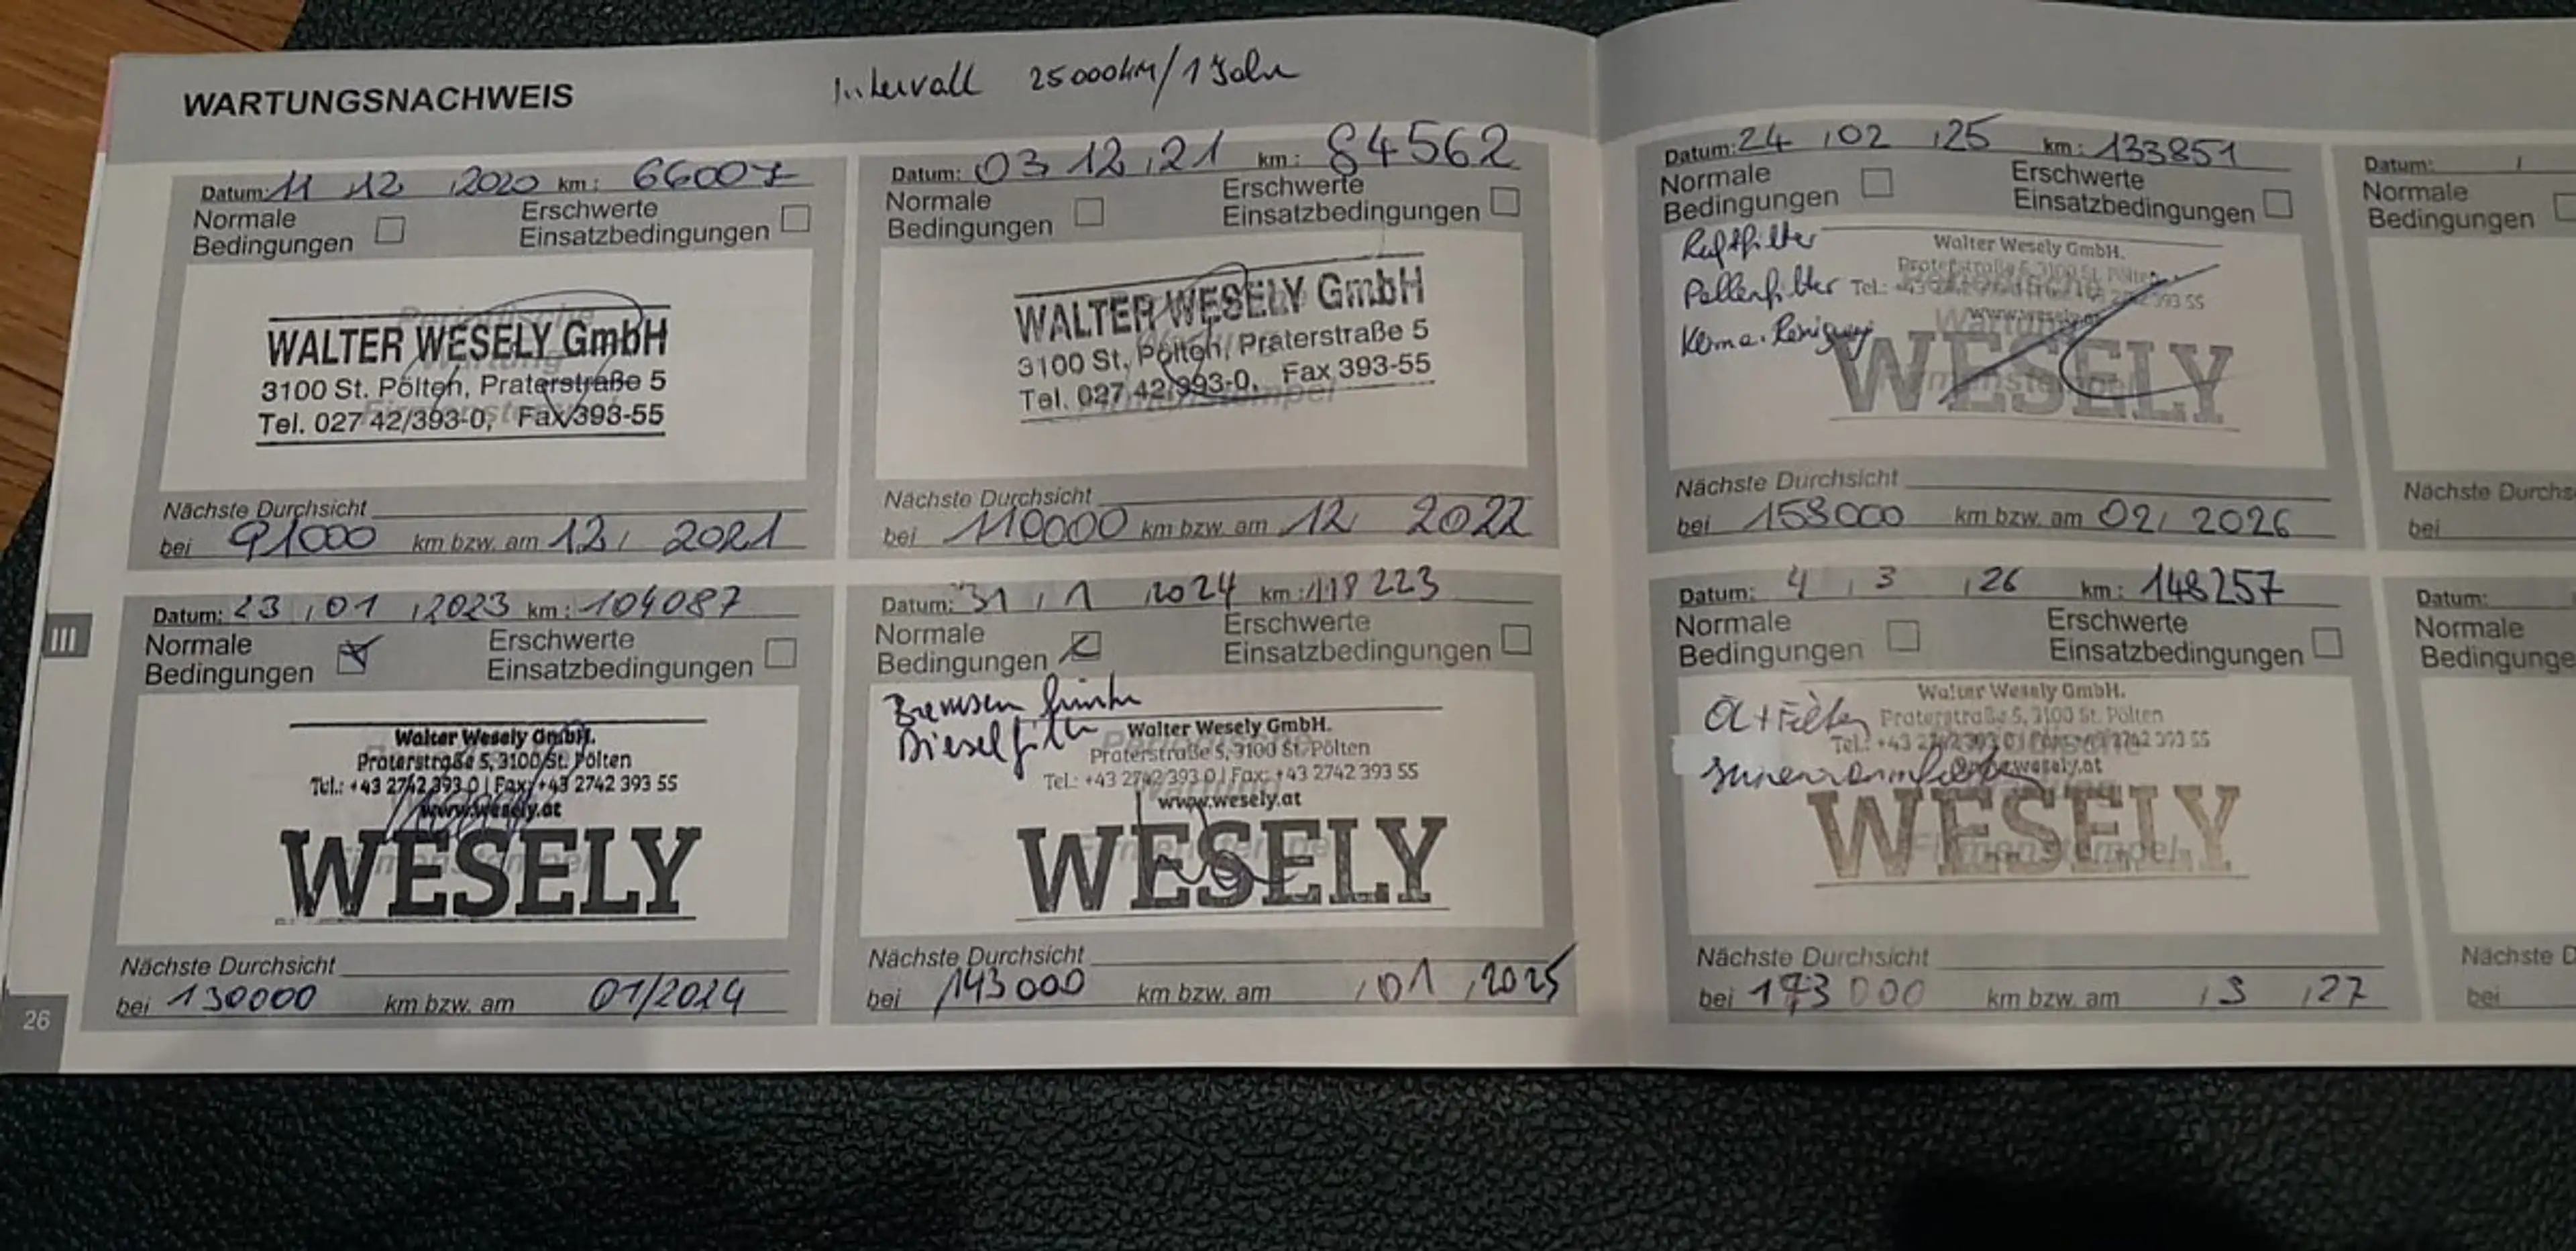 WARTUNGSNACHWEIS
Intervall 25000km/1 Jahr
Datum: 11 12 2020 km: 66007
Normale Bedingungen
Erschwerte Einsatzbedingungen
WALTER WESELY GmbH
3100 St. Pölten, Praterstraße 5
Tel. 027 42/393-0, Fax 393-55
Nächste Durchsicht
bei 91000 km bzw. am 12 / 2021
Datum: 03 12 21 km: 84562
Normale Bedingungen
Erschwerte Einsatzbedingungen
WALTER WESELY GmbH
3100 St. Pölten, Praterstraße 5
Tel. 027 42/393-0, Fax 393-55
Nächste Durchsicht
bei 110000 km bzw. am 12 2022
Datum: 23 01 2023 km: 104087
Normale Bedingungen
Erschwerte Einsatzbedingungen
Walter Wesely GmbH.
Praterstraße 5, 3100 St. Pölten
Tel.: +43 2742 393 0 | Fax: +43 2742 393 55
www.wesely.at
WESELY
Nächste Durchsicht
bei 130000 km bzw. am 01/2024
Datum: 31 1 2024 km: 118223
Normale Bedingungen
Erschwerte Einsatzbedingungen
Bremsen
Dieselfilter
Walter Wesely GmbH.
Praterstraße 5, 3100 St. Pölten
Tel.: +43 2742 393 0 | Fax: +43 2742 393 55
www.wesely.at
WESELY
Nächste Durchsicht
bei 143000 km bzw. am 01 2025
III
26
Datum: 24 02 25 km: 133851
Normale Bedingungen
Erschwerte Einsatzbedingungen
Luftfilter
Pollenfilter
Walter Wesely GmbH.
Praterstraße 5, 3100 St. Pölten
www.wesely.at
WESELY
Nächste Durchsicht
bei 158000 km bzw. am 02 / 2026
Datum: 4 3 26 km: 148257
Normale Bedingungen
Erschwerte Einsatzbedingungen
Öl + Filter
Innenraumfilter
Walter Wesely GmbH.
Praterstraße 5, 3100 St. Pölten
WESELY
Nächste Durchsicht
bei 173000 km bzw. am 3 27
Datum:
Normale Bedingungen
Nächste
bei
Datum:
Normale
Nächste
bei